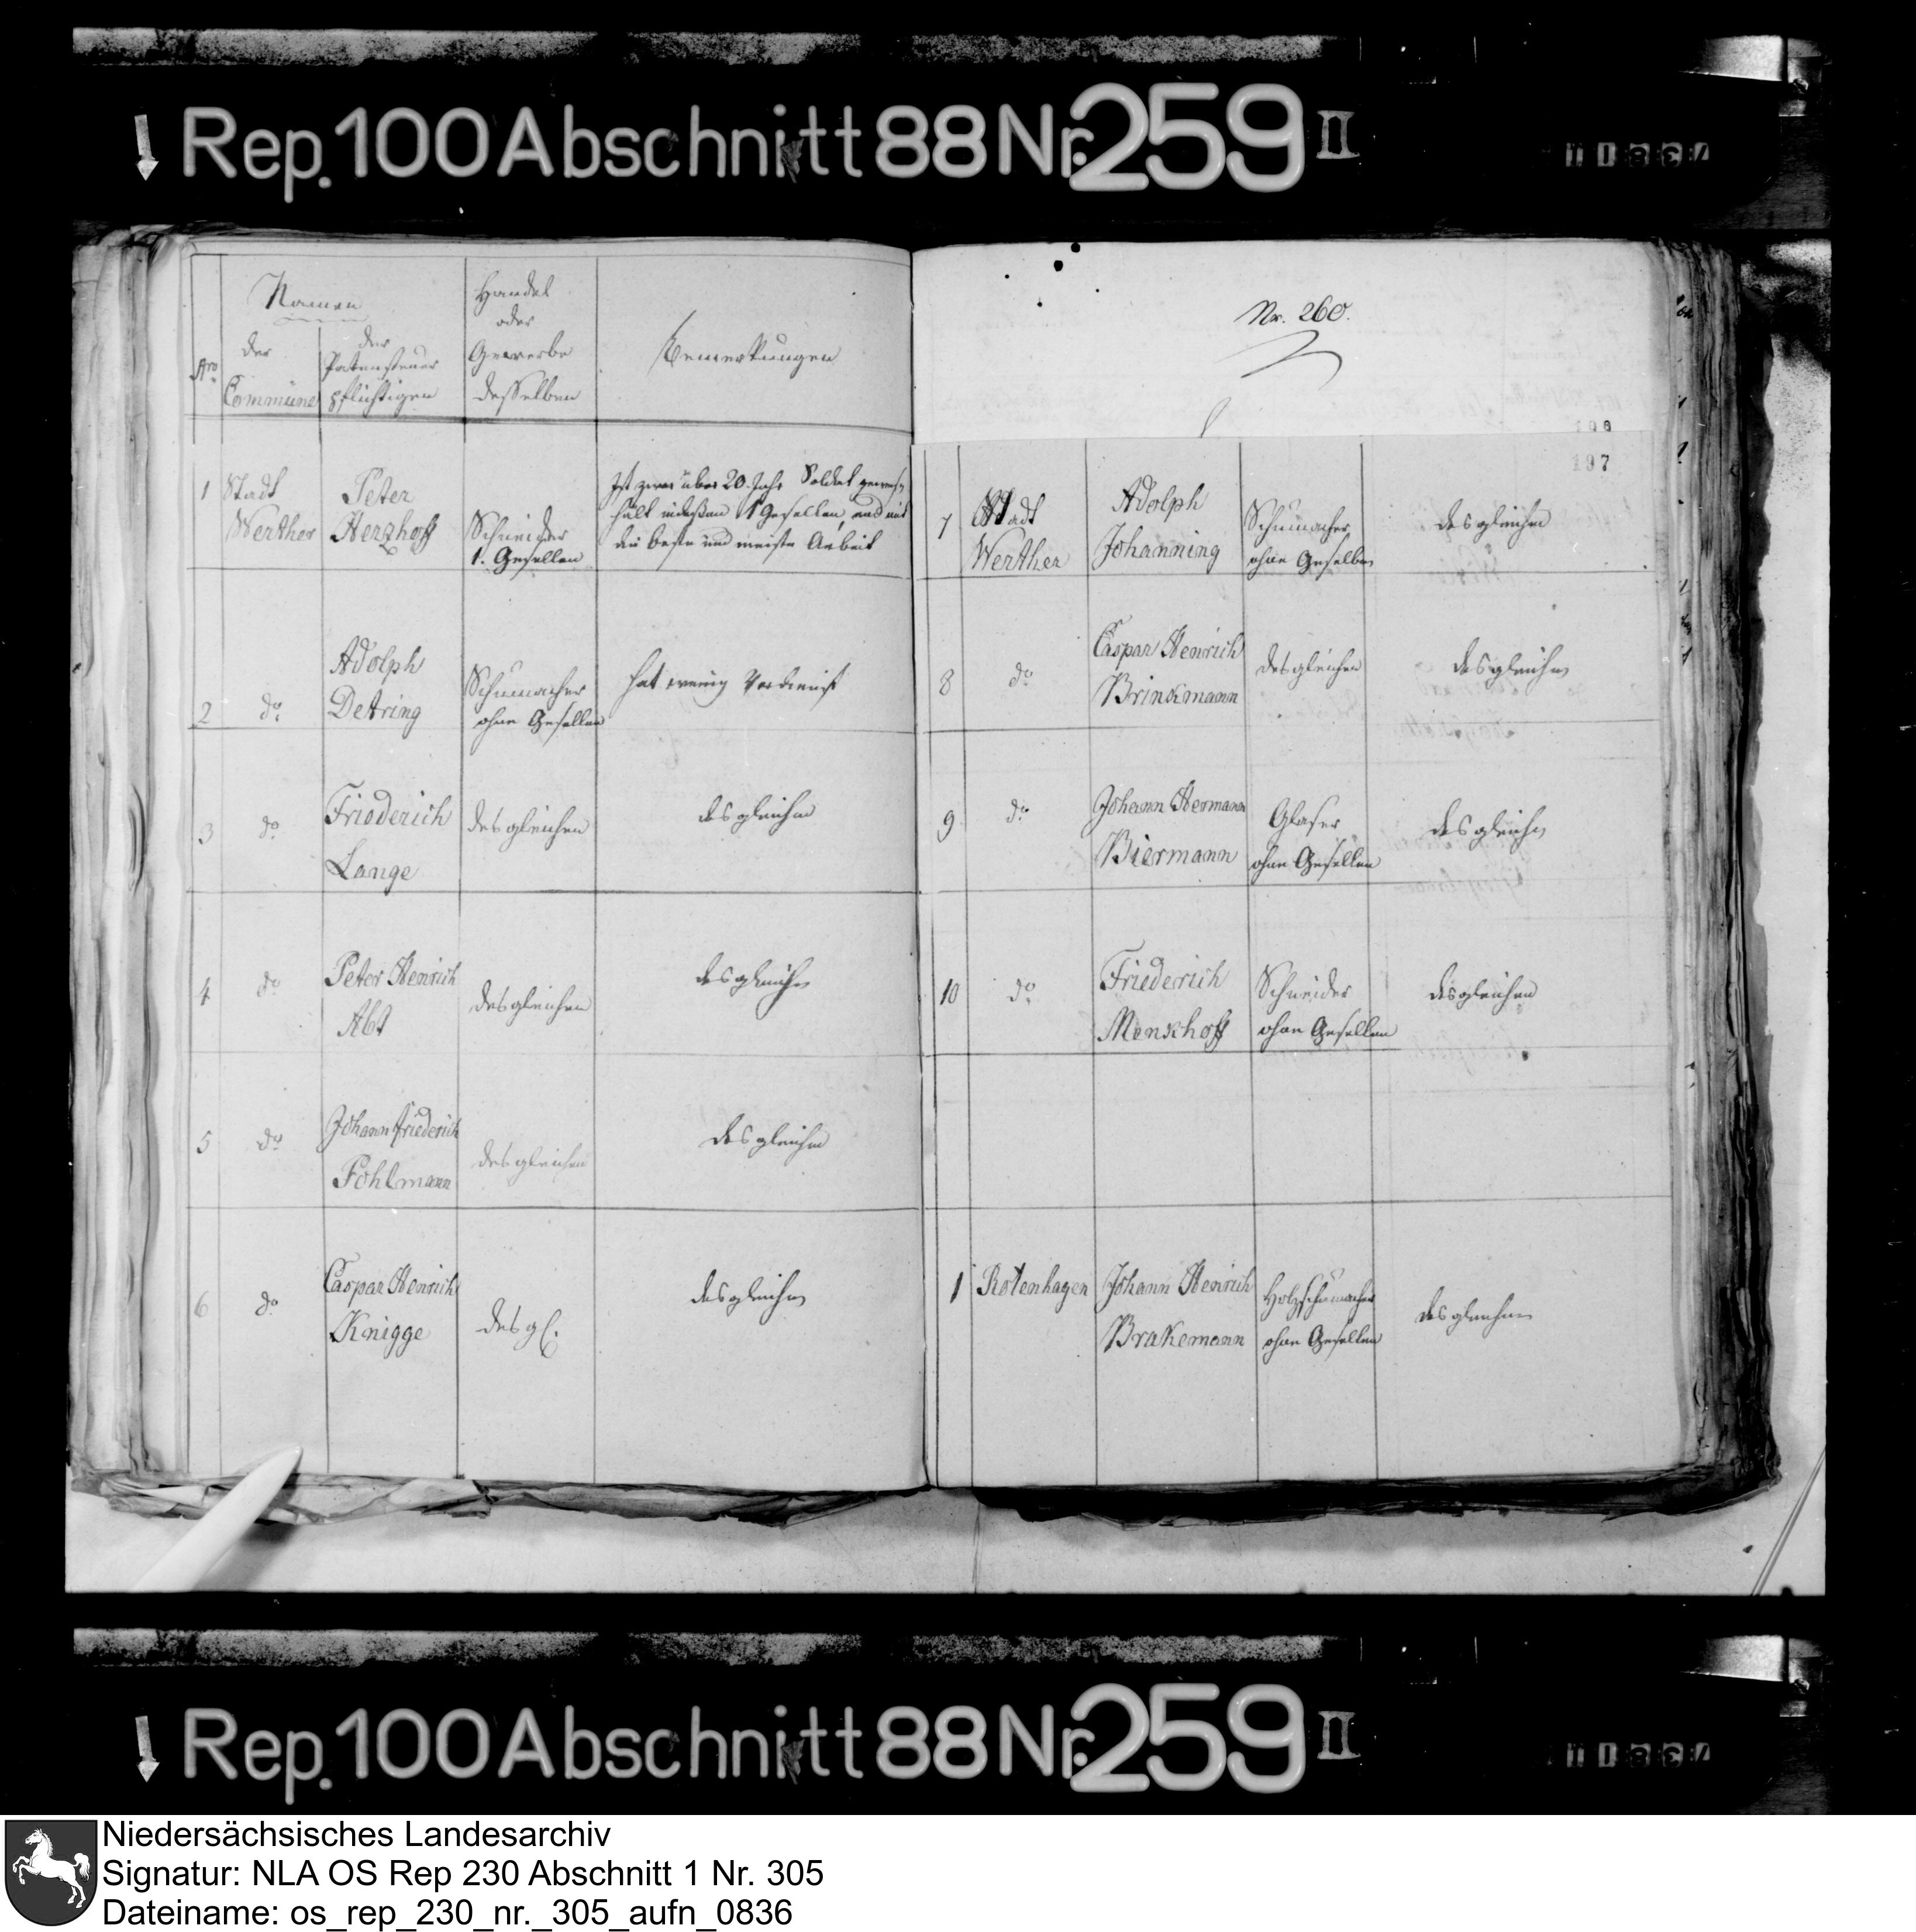 Rep. 100 Abschnitt 88 Nr. 259 II
Namen
Nro
der
Commüne
der
Patensteuer
pflichtigen
Handel
oder
Gewerbe
desselben
Bemerkungen
1 Stadt
Werther
Peter
Herzhoff
Schneider
1. Gesellen
Ist zwar über 20. Jahr Soldat gewesen
hält indeßen 1 Gesellen, und mit
die beste und meiste Arbeit
2 do
Adolph
Detring
Schumacher
ohne Gesellen
hat wenig Verdienst
3 do
Friederich
Lange
desgleichen
desgleichen
4 do
Peter Henrich
Abt
desgleichen
desgleichen
5 do
Johann friederich
Pohlmann
desgleichen
desgleichen
6 do
Caspar Henrich
Knigge
desgl.
desgleichen
Nr. 260.
197
7 Stadt
Werther
Adolph
Johanning
Schumacher
ohne Gesellen
desgleichen
8 do
Caspar Henrich
Brinkmann
desgleichen
desgleichen
9 do
Johann Hermann
Biermann
Glaser
ohne Gesellen
desgleichen
10 do
Friederich
Menkhoff
Schneider
ohne Gesellen
desgleichen
1 Rotenhagen
Johann Henrich
Brakemann
Holzschumacher
ohne Gesellen
desgleichen
Rep. 100 Abschnitt 88 Nr. 259 II
Niedersächsisches Landesarchiv
Signatur: NLA OS Rep 230 Abschnitt 1 Nr. 305
Dateiname: os_rep_230_nr._305_aufn_0836